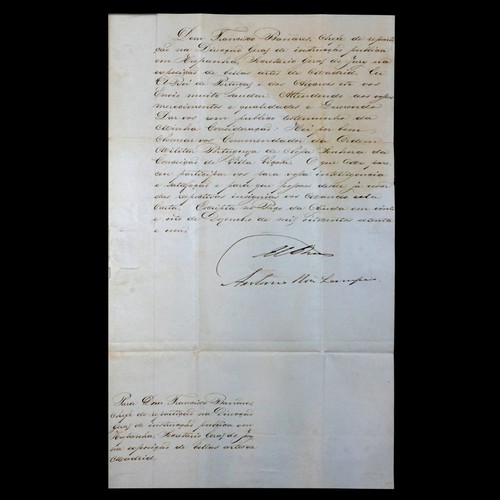 Dom Francisco Bañares, Chefe de reparti-
ção na Direcção Geral de instrucção publica
em Hespanha, Secretario Geral do jury na
exposição de bellas artes de Madrid. Eu
El-Rei de Portugal e dos Algarves etc vos
envio muito saudar. Attendendo aos vossos
merecimentos e qualidades e Querendo
Dar-vos um publico testemunho da
Minha Consideração: Hei por bem
Nomear-vos Commendador da Ordem
Militar Portugueza de Nossa Senhora da
Conceição de Villa Viçosa. O que Me pare-
ceu participar-vos para vossa intelligencia
e satisfação e para que possaes desde já usar
das respectivas insignias vos Mando esta
Carta. Escripta no Paço da Ajuda em vinte
e oito de Dezembro de mil oitocentos setenta
e um.
Antonio
Para Dom Francisco Bañares,
Chefe de repartição na Direcção
Geral de instrucção publica em
Hespanha, Secretario Geral do jury
na exposição de bellas artes de
Madrid.